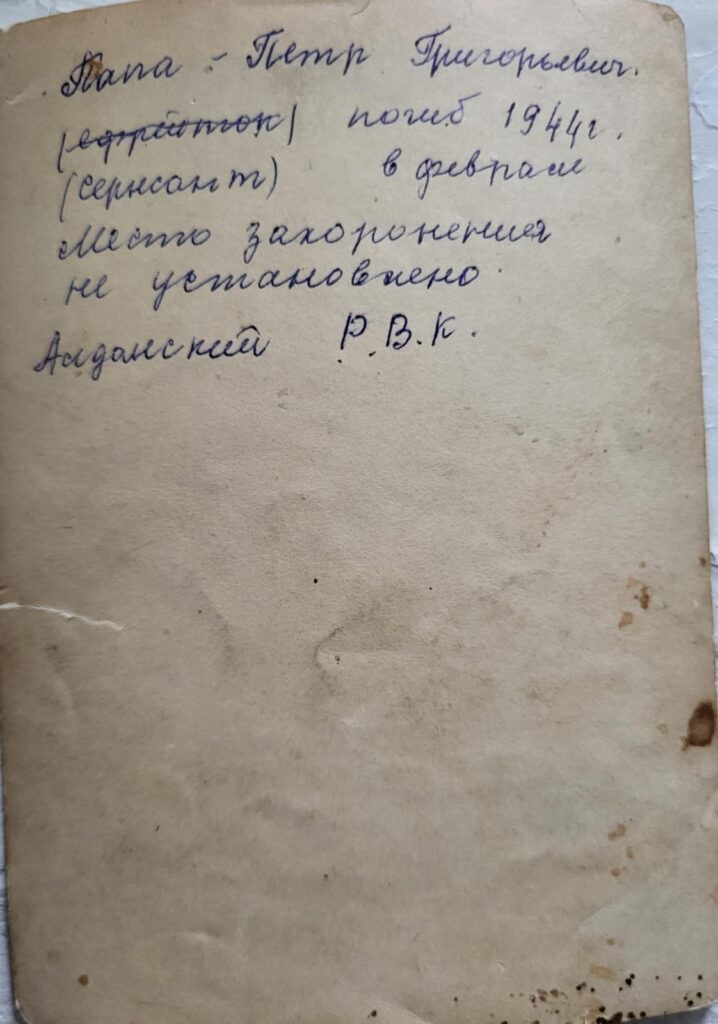 Папа - Петр Григорьевич.
(ефрейтор) погиб 1944г.
(сержант) в феврале
Место захоронения
не установлено.
Алданский Р.В.К.